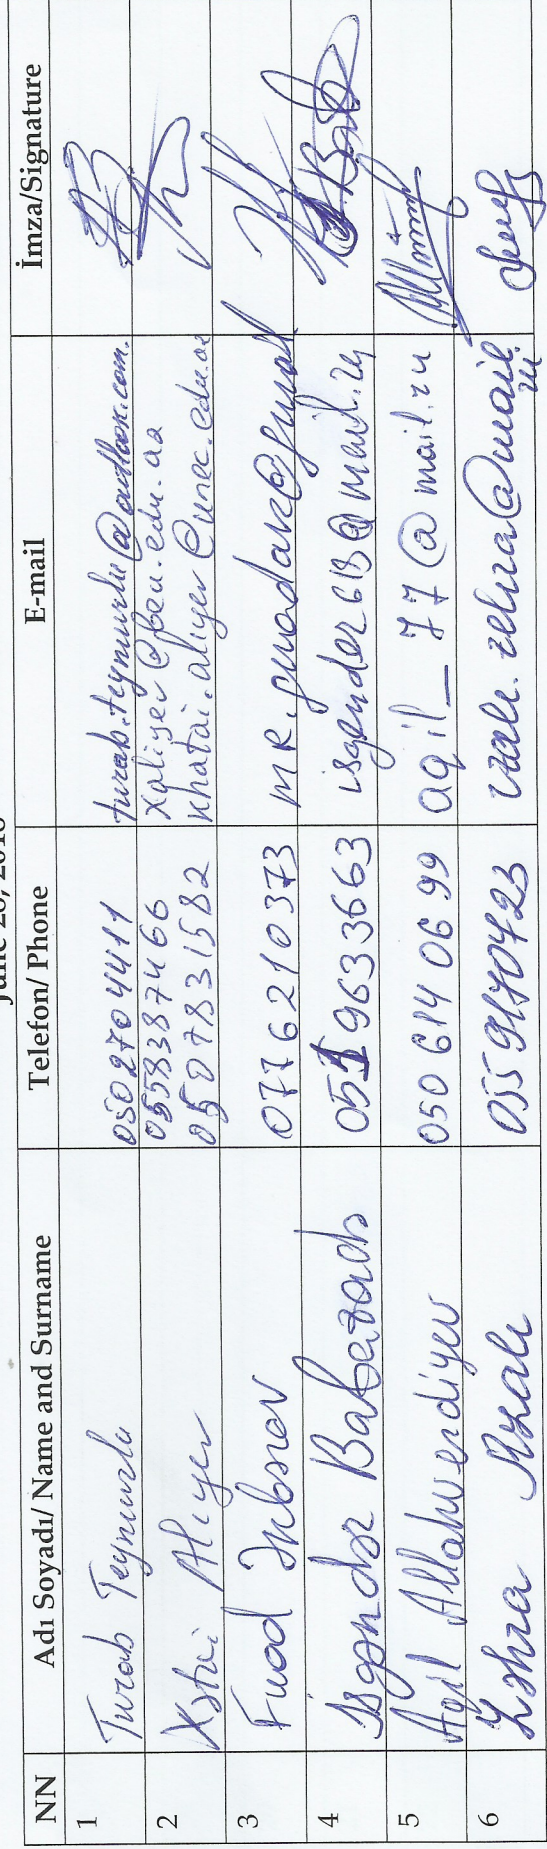 June 28, 2018
NN Adı Soyadı/ Name and Surname Telefon/ Phone E-mail İmza/Signature
1 Turab Teymurlu 0502704411 turab.teymurlu@outlook.com.
2 Xətai Aliyev 0558387466 xaliyev@beu.edu.az
0507831582 khatai.aliyev@unec.edu.az
3 Fuad 0776210373
4 İsgəndər Babazadə 051 9633663 isgender613@mail.ru
5 Aqil Allahverdiyev 050 614 06 99 aqil_77@mail.ru
6 Zəhra Rzalı 055 9170423 rzali.zehra@mail.ru